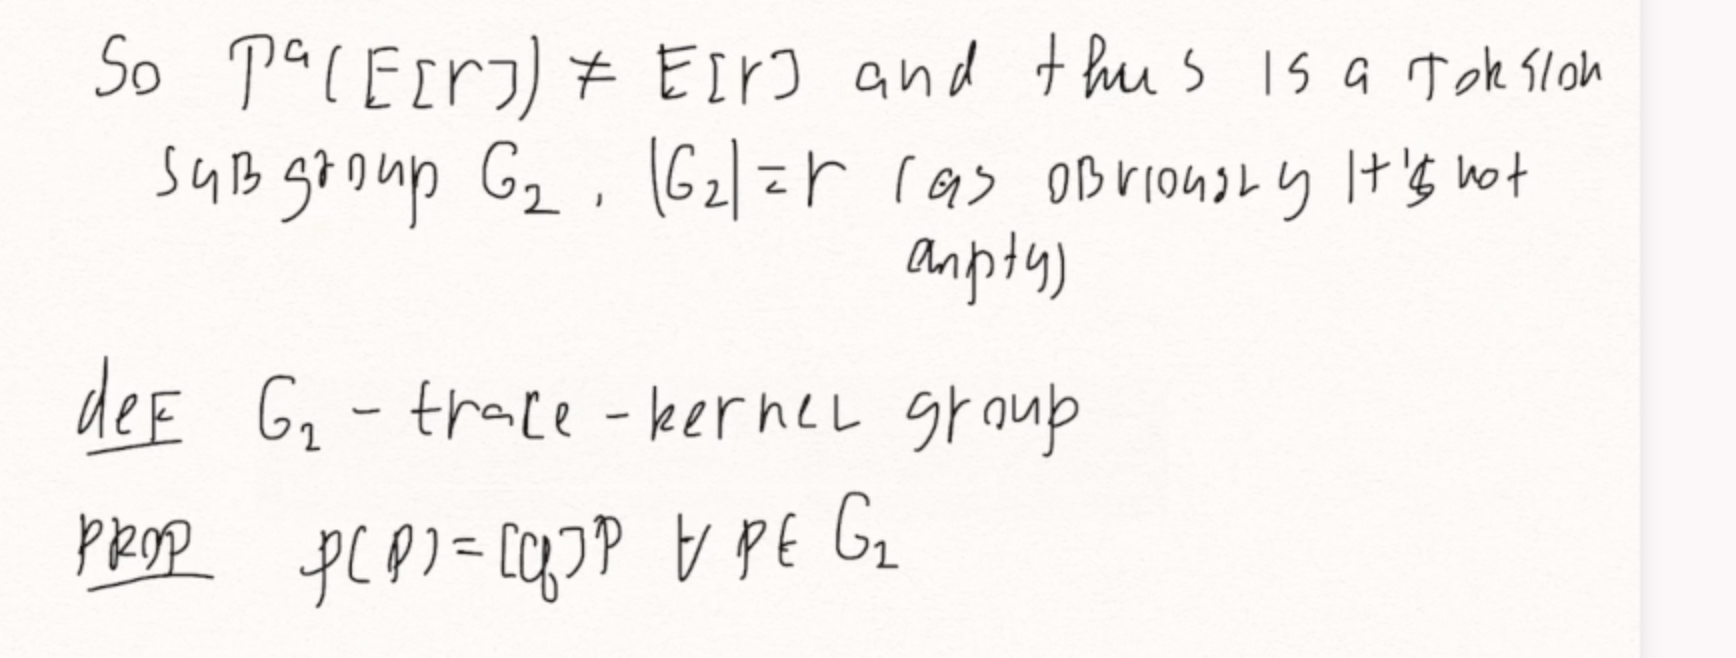 So Tᵃ(E[r]) ≠ E[r] and thus is a torsion
subgroup G₂, |G₂| = r (as obviously it's not
ampty)
def G₂ - trace - kernel group
Prop φ(P) = [q]P ∀ P ∈ G₂